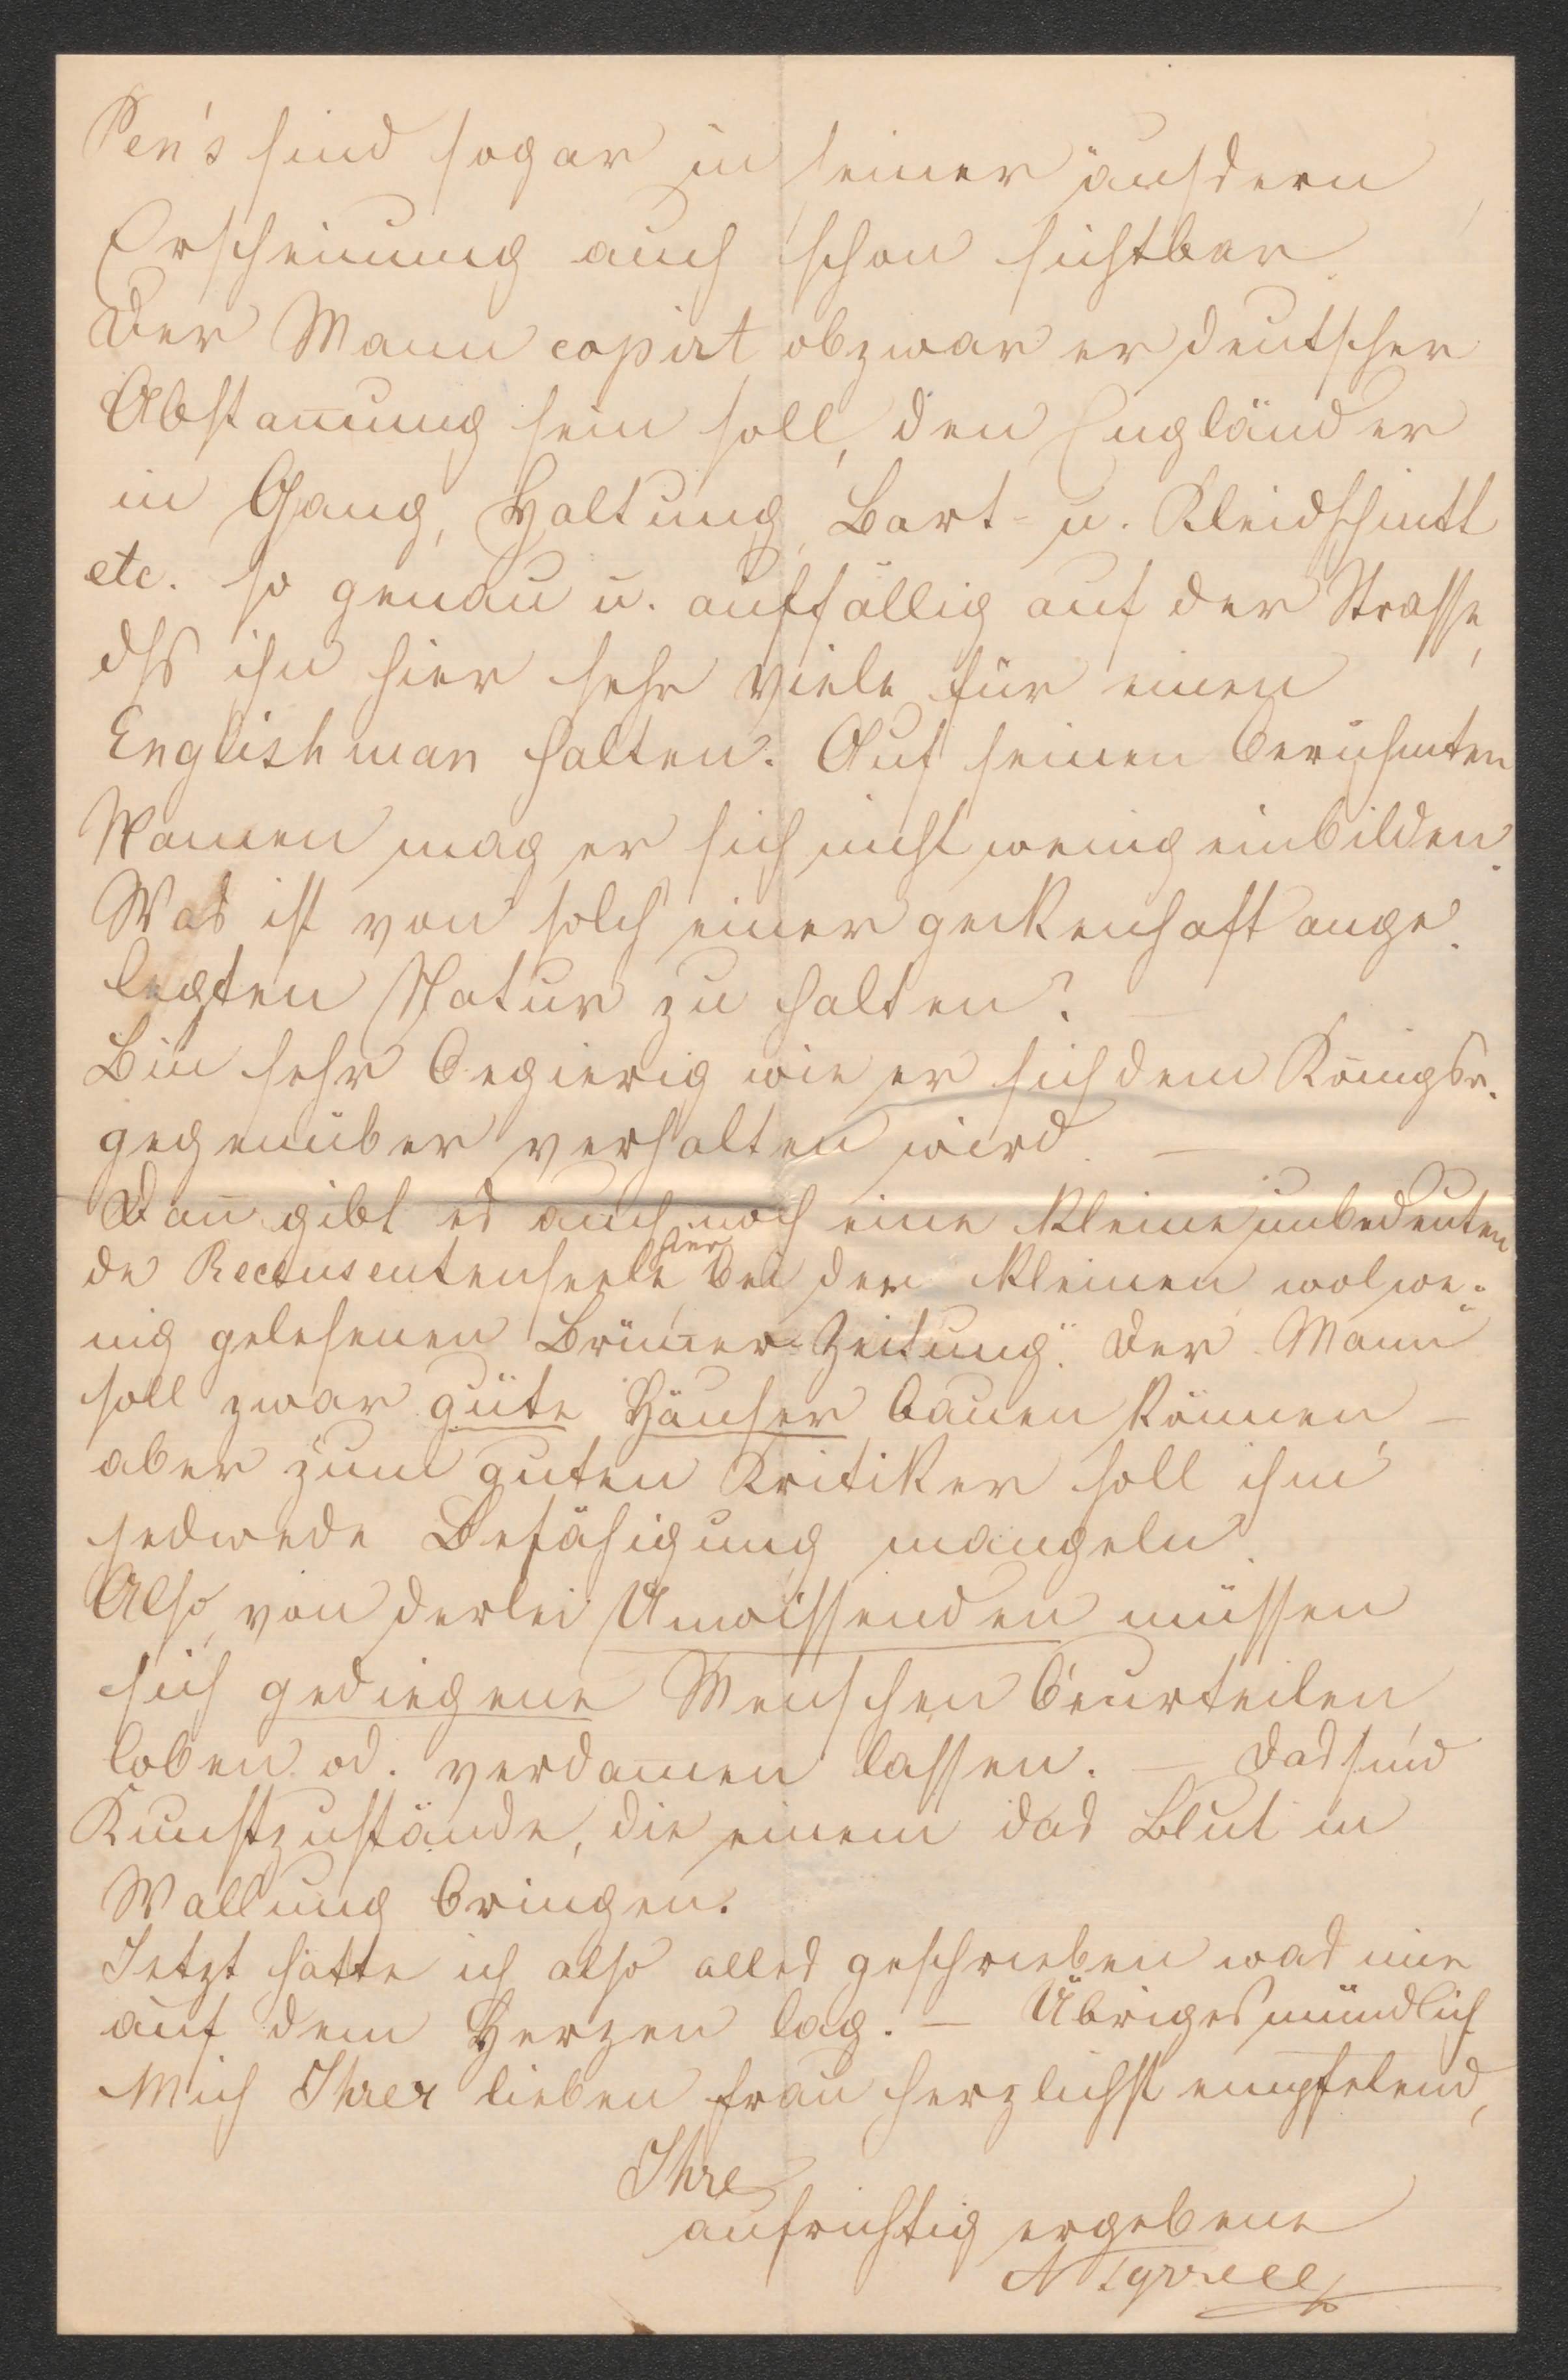 Pen's sind sogar in seiner äussern
Erscheinung auch schon sichtbar.
Der Mann copirt obzwar er deutscher
Abstam̅ung sein soll, den Engländer
in Gang, Haltung, Bart- u. Kleidschnitt
etc. so genau u. auffällig auf der Strasse,
dss ihn hier sehr viele für einen
Englishman halten. Auf seinen berühmten
Namen mag er sich nicht wenig einbilden.
Was ist von solch einer geckenhaft ange-
legten Natur zu halten? —
Bin sehr begierig wie er sich dem Königsr.
gegenüber verhalten wird. —
Dan̅ gibt es auch noch eine kleine unbedeuten
de Recensentenseele hier bei der kleinen wol we-
nig gelesenen Brün̅er-Zeitung". Der Mann
soll zwar gute Häuser bauen können —
aber zum guten Kritiker soll ihm
jedwede Befähigung mangeln.
Also, von derlei Unwissenden müssen
sich gediegene Menschen beurteilen
loben od. verdam̅en lassen. — Das sind
Kunstzustände, die einem das Blut in
Wallung bringen.
Jetzt hätte ich also alles geschrieben was mir
auf dem Herzen lag. — Übriges mündlich
Mich Ihrer lieben Frau herzlichst empfelend,
Ihre
aufrichtig ergebene
A Tyrrell